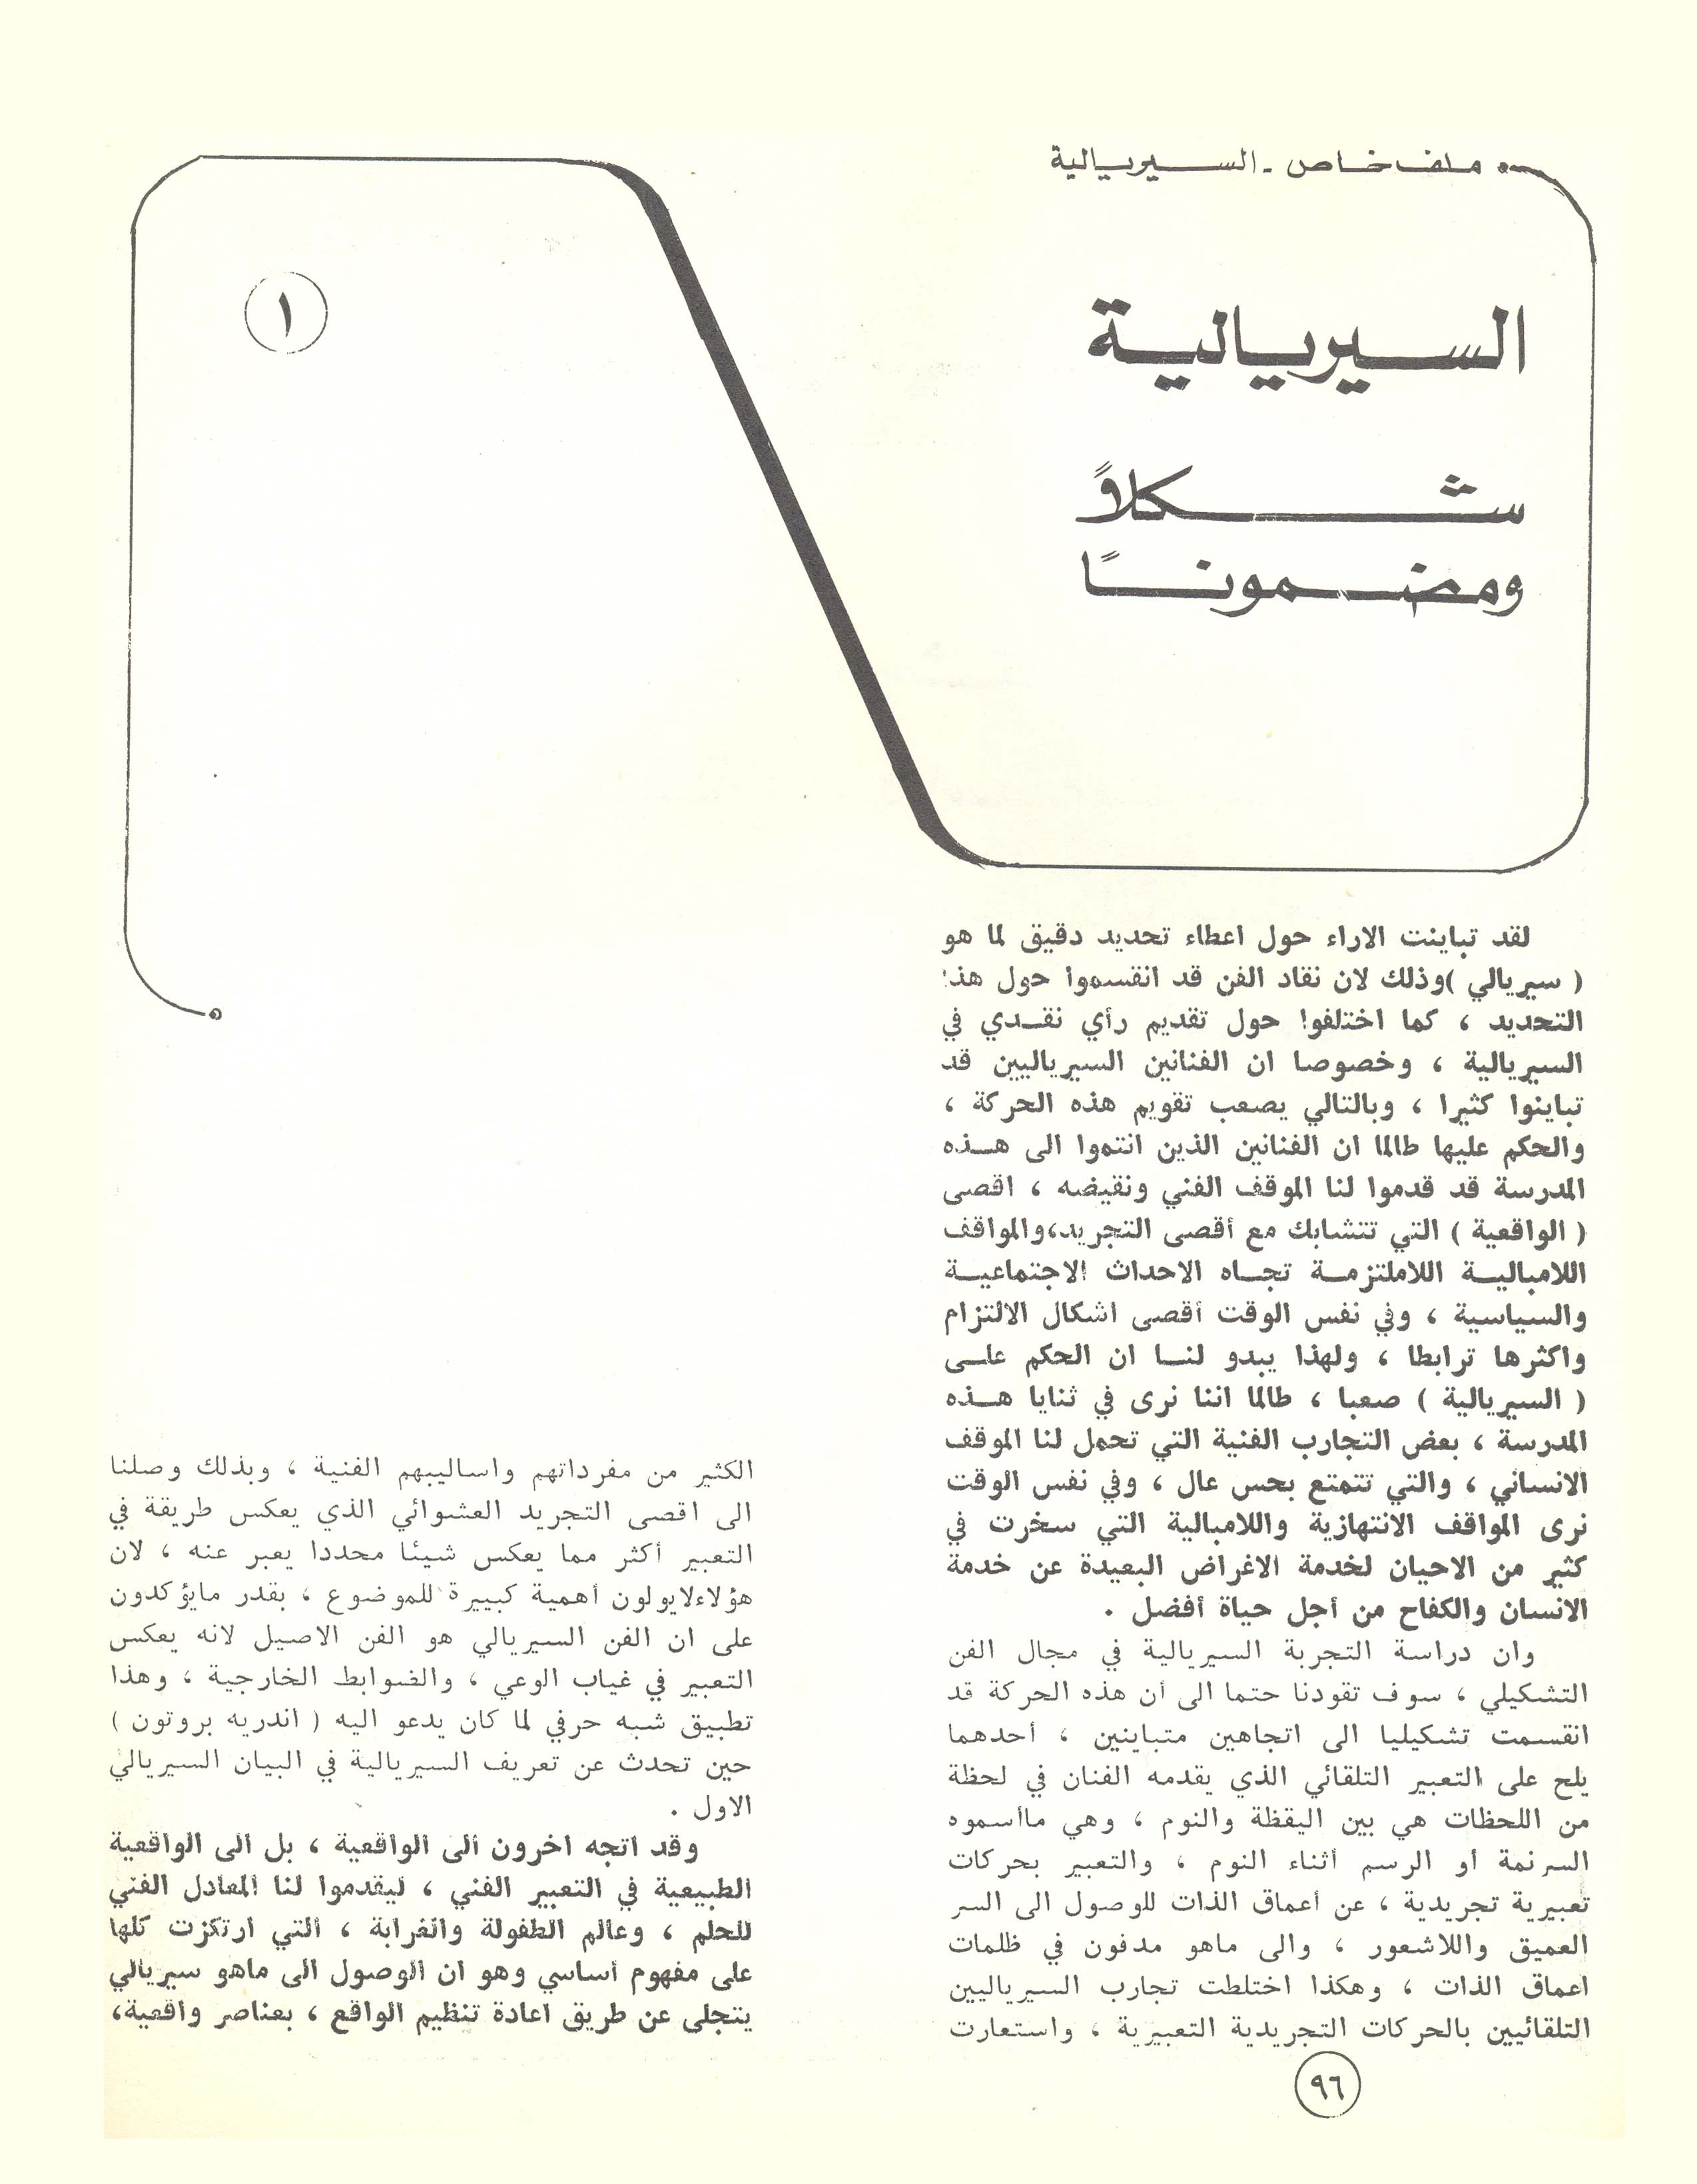 ملف خاص - السيريالية
السيريالية
شكلاً
ومضمونًا
١
لقد تباينت الاراء حول اعطاء تحديد دقيق لما هو
( سيريالي )وذلك لان نقاد الفن قد انقسموا حول هذا
التحديد ، كما اختلفوا حول تقديم رأي نقدي في
السيريالية ، وخصوصا ان الفنانين السيرياليين قد
تباينوا كثيرا ، وبالتالي يصعب تقويم هذه الحركة ،
والحكم عليها طالما ان الفنانين الذين انتموا الى هذه
المدرسة قد قدموا لنا الموقف الفني ونقيضه ، اقصى
( الواقعية ) التي تتشابك مع أقصى التجريد،والمواقف
اللامبالية اللاملتزمة تجاه الاحداث الاجتماعية
والسياسية ، وفي نفس الوقت أقصى اشكال الالتزام
واكثرها ترابطا ، ولهذا يبدو لنا ان الحكم على
( السيريالية ) صعبا ، طالما اننا نرى في ثنايا هذه
المدرسة ، بعض التجارب الفنية التي تحمل لنا الموقف
الانساني ، والتي تتمتع بحس عال ، وفي نفس الوقت
نرى المواقف الانتهازية واللامبالية التي سخرت في
كثير من الاحيان لخدمة الاغراض البعيدة عن خدمة
الانسان والكفاح من أجل حياة أفضل .
وان دراسة التجربة السيريالية في مجال الفن
التشكيلي ، سوف تقودنا حتما الى أن هذه الحركة قد
انقسمت تشكيليا الى اتجاهين متباينين ، أحدهما
يلح على التعبير التلقائي الذي يقدمه الفنان في لحظة
من اللحظات هي بين اليقظة والنوم ، وهي ماأسموه
السرنمة أو الرسم أثناء النوم ، والتعبير بحركات
تعبيرية تجريدية ، عن أعماق الذات للوصول الى السر
العميق واللاشعور ، والى ماهو مدفون في ظلمات
اعماق الذات ، وهكذا اختلطت تجارب السيرياليين
التلقائيين بالحركات التجريدية التعبيرية ، واستعارت
الكثير من مفرداتهم واساليبهم الفنية ، وبذلك وصلنا
الى اقصى التجريد العشوائي الذي يعكس طريقة في
التعبير أكثر مما يعكس شيئا محددا يعبر عنه ، لان
هؤلاءلايولون أهمية كبييرة للموضوع ، بقدر مايؤكدون
على ان الفن السيريالي هو الفن الاصيل لانه يعكس
التعبير في غياب الوعي ، والضوابط الخارجية ، وهذا
تطبيق شبه حرفي لما كان يدعو اليه ( اندريه بروتون )
حين تحدث عن تعريف السيريالية في البيان السيريالي
الاول .
وقد اتجه اخرون الى الواقعية ، بل الى الواقعية
الطبيعية في التعبير الفني ، ليقدموا لنا المعادل الفني
للحلم ، وعالم الطفولة والغرابة ، التي ارتكزت كلها
على مفهوم أساسي وهو ان الوصول الى ماهو سيريالي
يتجلى عن طريق اعادة تنظيم الواقع ، بعناصر واقعية،
٩٦